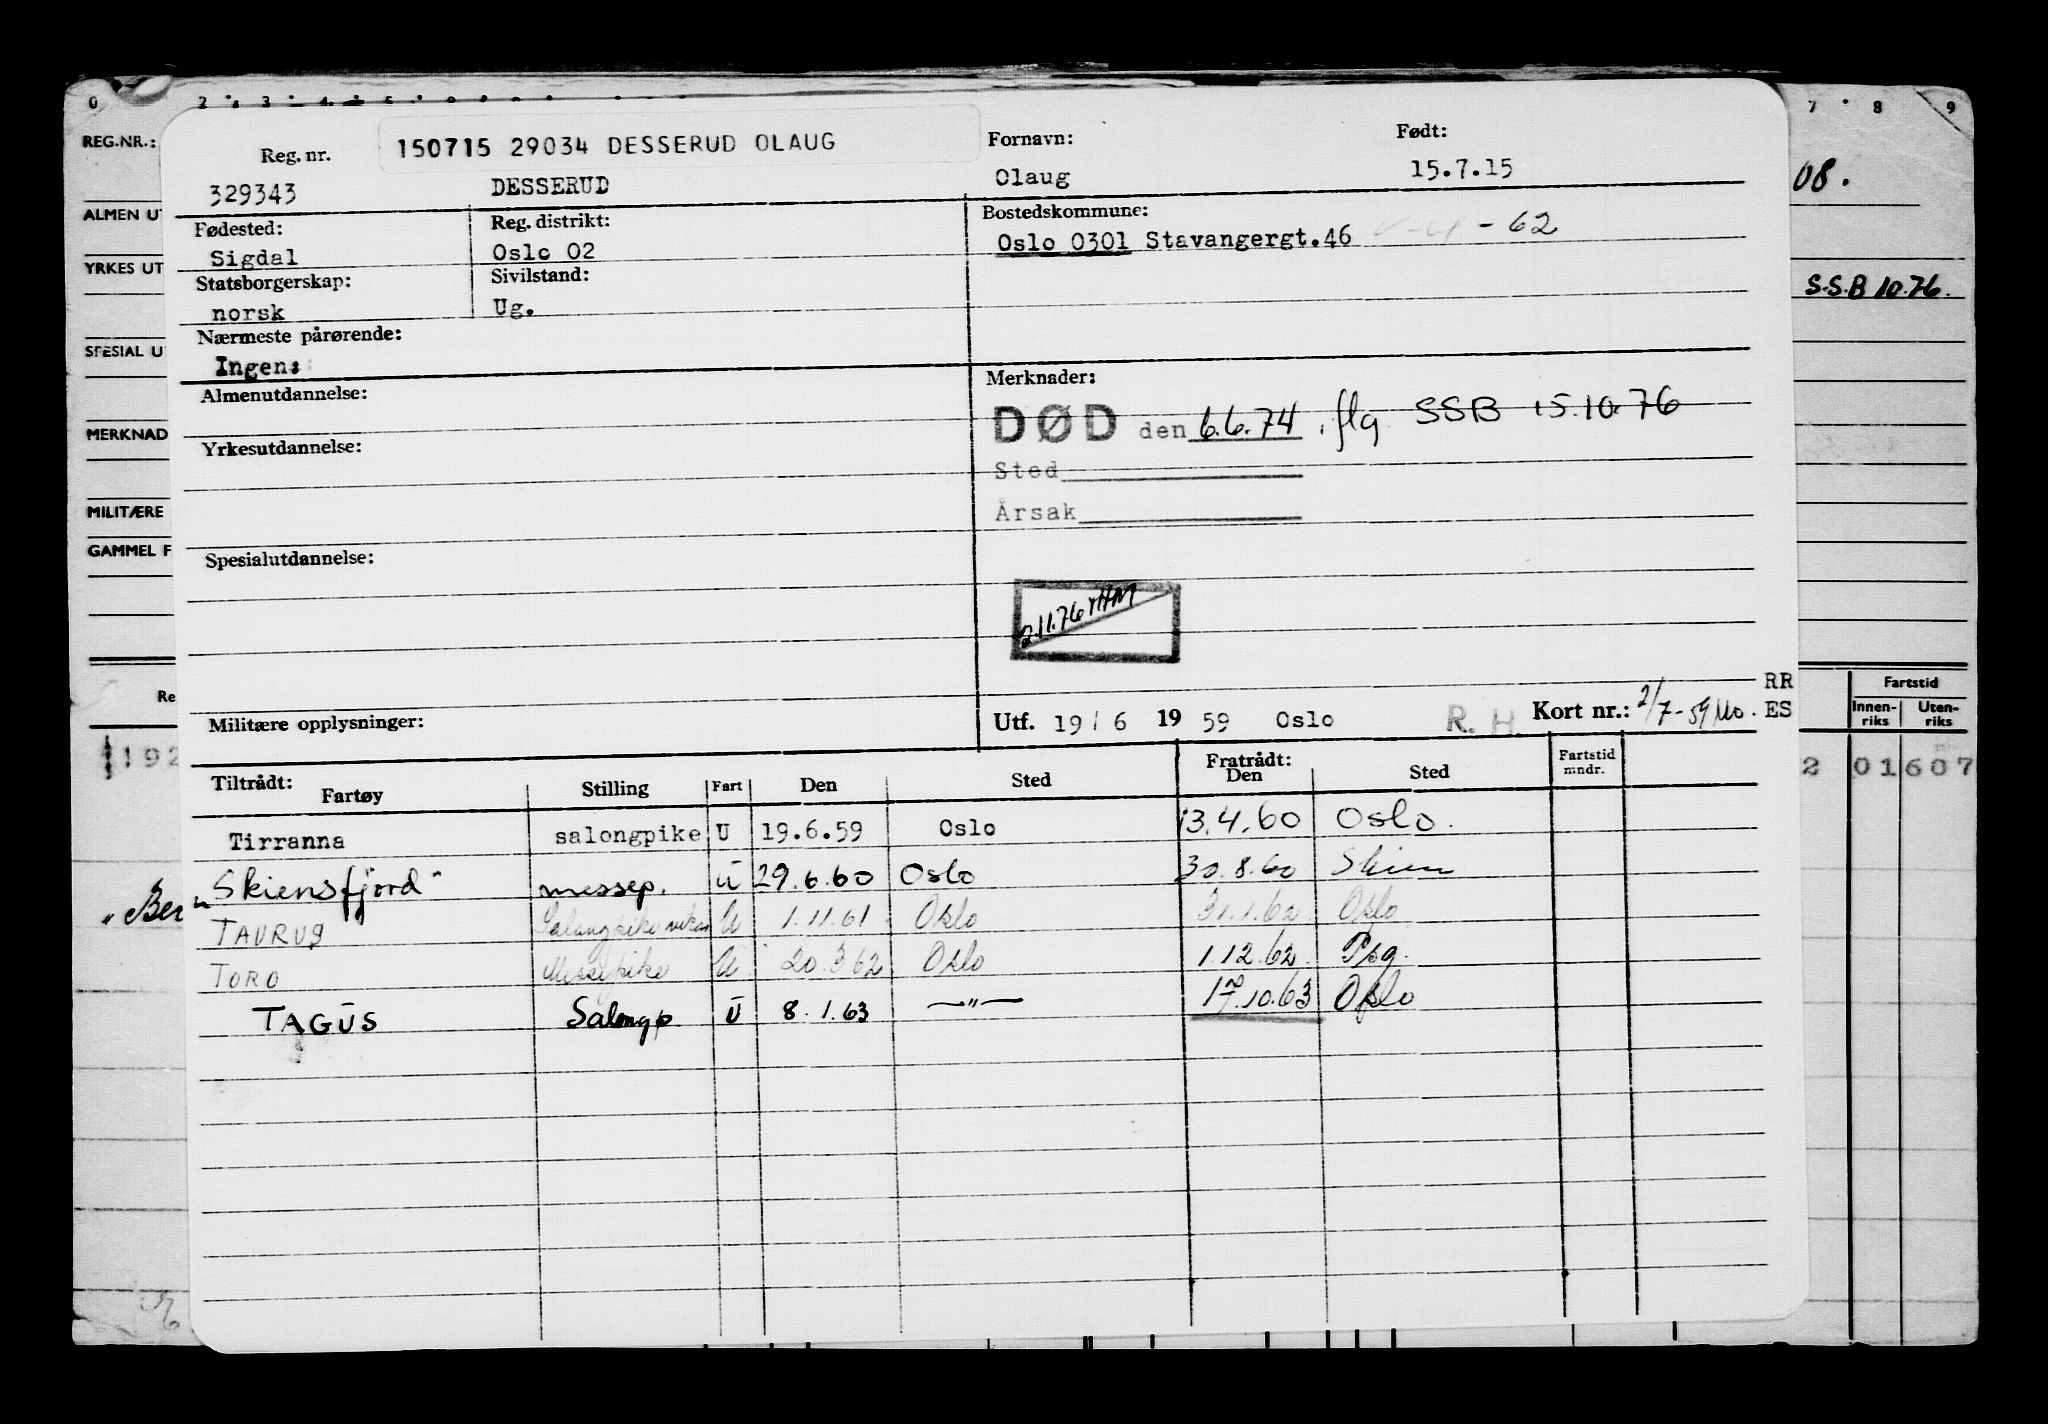 0 2 3 4 5 7 8 9
REG.NR.:
Reg. nr. 150715 29034 DESSERUD OLAUG Fornavn: Født:
329343 DESSERUD Olaug 15.7.15 08.
ALMEN UT
Fødested: Reg. distrikt: Bostedskommune:
Sigdal Oslo 02 Oslo 0301 Stavangergt.46 - 62
YRKES UT
Statsborgerskap: Sivilstand: S.S.B 10.76.
norsk Ug.
Nærmeste pårørende:
SPESIAL U
Ingen:
Almenutdannelse: Merknader:
DØD den 6.6.74 . flg. SSB 15.10.76
MERKNAD
Yrkesutdannelse:
Sted
MILITÆRE
Årsak
GAMMEL F
Spesialutdannelse:
2.11.76
RR
Re Fartstid
Militære opplysninger: Utf. 19 / 6 19 59 Oslo R. H. Kort nr.: 2/7-59 Mo. ES
Innenriks Utenriks
192 2 01 607
Tiltrådt: Fratrådt:
Fartøy Stilling Fart Den Sted Den Sted Fartstid mndr.
Tirranna salongpike U 19.6.59 Oslo 13.4.60 Oslo.
"Skiensfjord" messep. U 29.6.60 Oslo 30.8.60 Skien
"Ber
TAURUS Salongpike vikar U 1.11.61 Oslo 31.1.62 Oslo
TORO Messepike U 20.3.62 Oslo 1.12.62 Psg.
TAGUS Salongp. U 8.1.63 —"— 17.10.63 Oslo